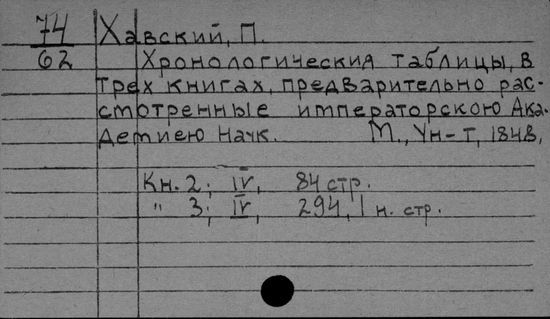 74 Хавский, П.
62 Хронологическия таблицы, в
трех книгах, предварительно рас-
смотренные императорскою Ака-
демиею Наук. М., Ун-т, 1848,
Кн. 2; IV, 84 стр.
" 3; IV, 294, 1 н. стр.